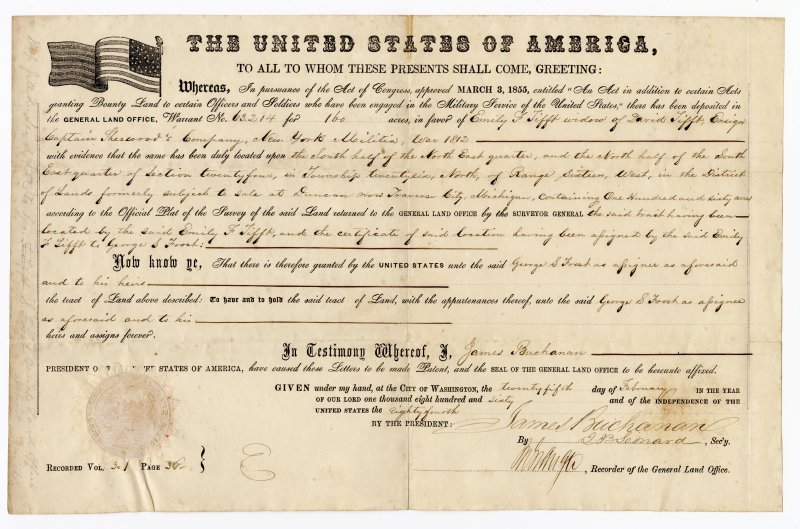 THE UNITED STATES OF AMERICA,
TO ALL TO WHOM THESE PRESENTS SHALL COME, GREETING:
Whereas, In pursuance of the Act of Congress, approved MARCH 3, 1855, entitled "An Act in addition to certain Acts
granting Bounty Land to certain Officers and Soldiers who have been engaged in the Military Service of the United States," there has been deposited in
the GENERAL LAND OFFICE, Warrant No. 63.214 for 160 acres, in favor of Emily F Tifft widow of David Tifft, Ensign
Captain Sherwood's Company, New York Militia, War 1812
with evidence that the same has been duly located upon the South half of the North East quarter, and the North half of the South
East quarter of Section twenty four, in Township twenty six, North, of Range Sixteen, West, in the District
of Lands formerly subject to sale at Duncan now Travers City, Michigan, Containing One Hundred and sixty acres
according to the Official Plat of the Survey of the said Land returned to the GENERAL LAND OFFICE by the SURVEYOR GENERAL the said tract having been
located by the said Emily F Tifft, and the certificate of said location having been assigned by the said Emily
F Tifft to George S Frost:
Now know ye, That there is therefore granted by the UNITED STATES unto the said George S Frost as assignee as aforesaid
and to his heirs
the tract of Land above described: To have and to hold the said tract of Land, with the appurtenances thereof, unto the said George S Frost as assignee
as aforesaid and to his
heirs and assigns forever.
In Testimony Whereof, I, James Buchanan
PRESIDENT OF THE UNITED STATES OF AMERICA, have caused these Letters to be made Patent, and the SEAL OF THE GENERAL LAND OFFICE to be hereunto affixed.
GIVEN under my hand, at the CITY OF WASHINGTON, the twenty fifth day of February IN THE YEAR
OF OUR LORD one thousand eight hundred and sixty and of the INDEPENDENCE OF THE
UNITED STATES the eighty fourth
BY THE PRESIDENT: James Buchanan
By J B Leonard, Sec'y.
RECORDED VOL. 321 PAGE
, Recorder of the General Land Office.